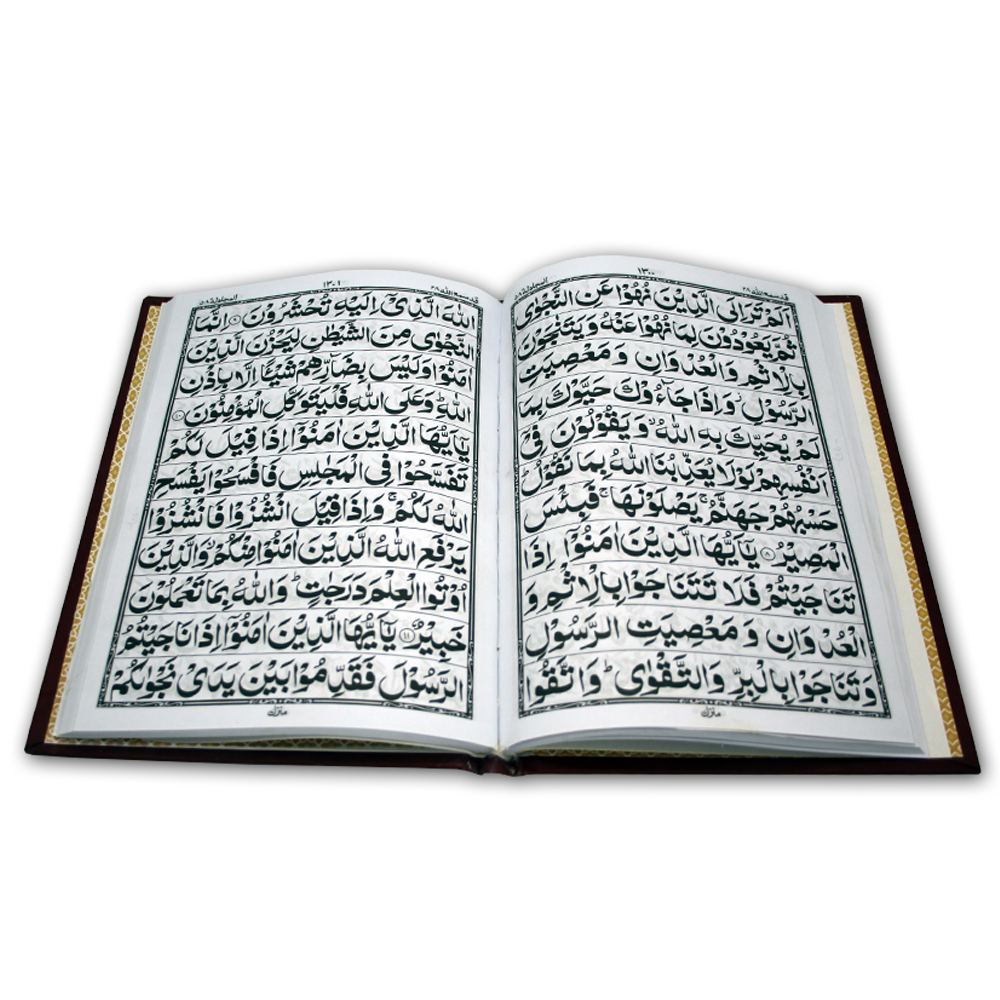 قد سمع الله ٢٨
١٣٠٠
المجادلة ٥٨
اَلَمْ تَرَ اِلَى الَّذِيْنَ نُهُوْا عَنِ النَّجْوٰى
ثُمَّ يَعُوْدُوْنَ لِمَا نُهُوْا عَنْهُ وَ يَتَنٰجَوْنَ
بِالْاِثْمِ وَ الْعُدْوَانِ وَ مَعْصِيَتِ
الرَّسُوْلِ ۫ وَ اِذَا جَآءُوْكَ حَيَّوْكَ بِمَا
لَمْ يُحَيِّكَ بِهِ اللّٰهُ ۙ وَ يَقُوْلُوْنَ فِيْۤ
اَنْفُسِهِمْ لَوْلَا يُعَذِّبُنَا اللّٰهُ بِمَا نَقُوْلُ ؕ
حَسْبُهُمْ جَهَنَّمُ ۚ يَصْلَوْنَهَا ۚ فَبِئْسَ
الْمَصِيْرُ ۝٨ يٰۤاَيُّهَا الَّذِيْنَ اٰمَنُوْۤا اِذَا
تَنَاجَيْتُمْ فَلَا تَتَنَاجَوْا بِالْاِثْمِ وَ
الْعُدْوَانِ وَ مَعْصِيَتِ الرَّسُوْلِ
وَ تَنَاجَوْا بِالْبِرِّ وَ التَّقْوٰى ؕ وَ اتَّقُوا
منزل
قد سمع الله ٢٨
١٣٠١
المجادلة ٥٨
اللّٰهَ الَّذِيْۤ اِلَيْهِ تُحْشَرُوْنَ ۝٩ اِنَّمَا
النَّجْوٰى مِنَ الشَّيْطٰنِ لِيَحْزُنَ الَّذِيْنَ
اٰمَنُوْا وَ لَيْسَ بِضَآرِّهِمْ شَيْـًٔا اِلَّا بِاِذْنِ
اللّٰهِ ؕ وَ عَلَى اللّٰهِ فَلْيَتَوَكَّلِ الْمُؤْمِنُوْنَ ۝١٠
يٰۤاَيُّهَا الَّذِيْنَ اٰمَنُوْۤا اِذَا قِيْلَ لَكُمْ
تَفَسَّحُوْا فِي الْمَجٰلِسِ فَافْسَحُوْا يَفْسَحِ
اللّٰهُ لَكُمْ ۚ وَ اِذَا قِيْلَ انْشُزُوْا فَانْشُزُوْا
يَرْفَعِ اللّٰهُ الَّذِيْنَ اٰمَنُوْا مِنْكُمْ ۙ وَ الَّذِيْنَ
اُوْتُوا الْعِلْمَ دَرَجٰتٍ ؕ وَ اللّٰهُ بِمَا تَعْمَلُوْنَ
خَبِيْرٌ ۝١١ يٰۤاَيُّهَا الَّذِيْنَ اٰمَنُوْۤا اِذَا نَاجَيْتُمُ
الرَّسُوْلَ فَقَدِّمُوْا بَيْنَ يَدَيْ نَجْوٰىكُمْ
منزل